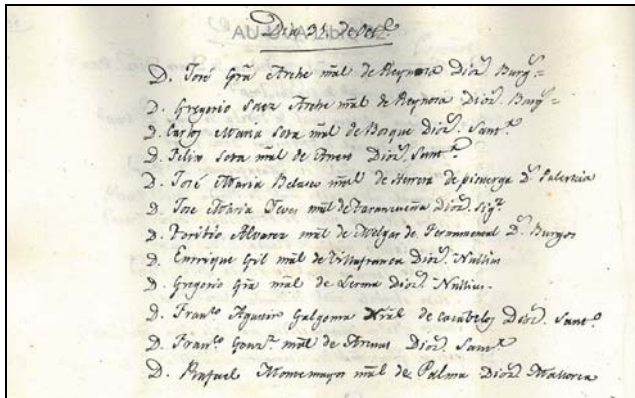 Dia 31. de Oct.e
D. José Gra Arche ntal de Reynosa Dioz. Burg.s =
D. Gregorio Saez Arche ntal de Reynosa Dioz. Burg.s =
D. Carlos Maria Sota ntal de Bosque Dioz. Sant.r
D. Felix Sota ntal de Anero Dioz. Sant.r
D. José Maria Belasco ntal de Herrera de pisuerga D.s Palencia
D. Jose Maria Yeves ntal de Taranzueña Dioz. Sig.za
D. Toribio Alvarez ntal de Melgar de Fernamental D.s Burgos
D. Enrrique Gil ntal de Villafranca Dioz. Nullius
D. Gregorio Gra ntal de Lerma Dioz. Nullius.
D. Fran.co Agustin Galgoma Ntral de cacabelos Dioz. Sant.o
D. Fran.co Gonz.z ntal de Arenas Dioz. Sant.r
D. Rafael Montemayor ntal de Palma Dioz. Mallorca